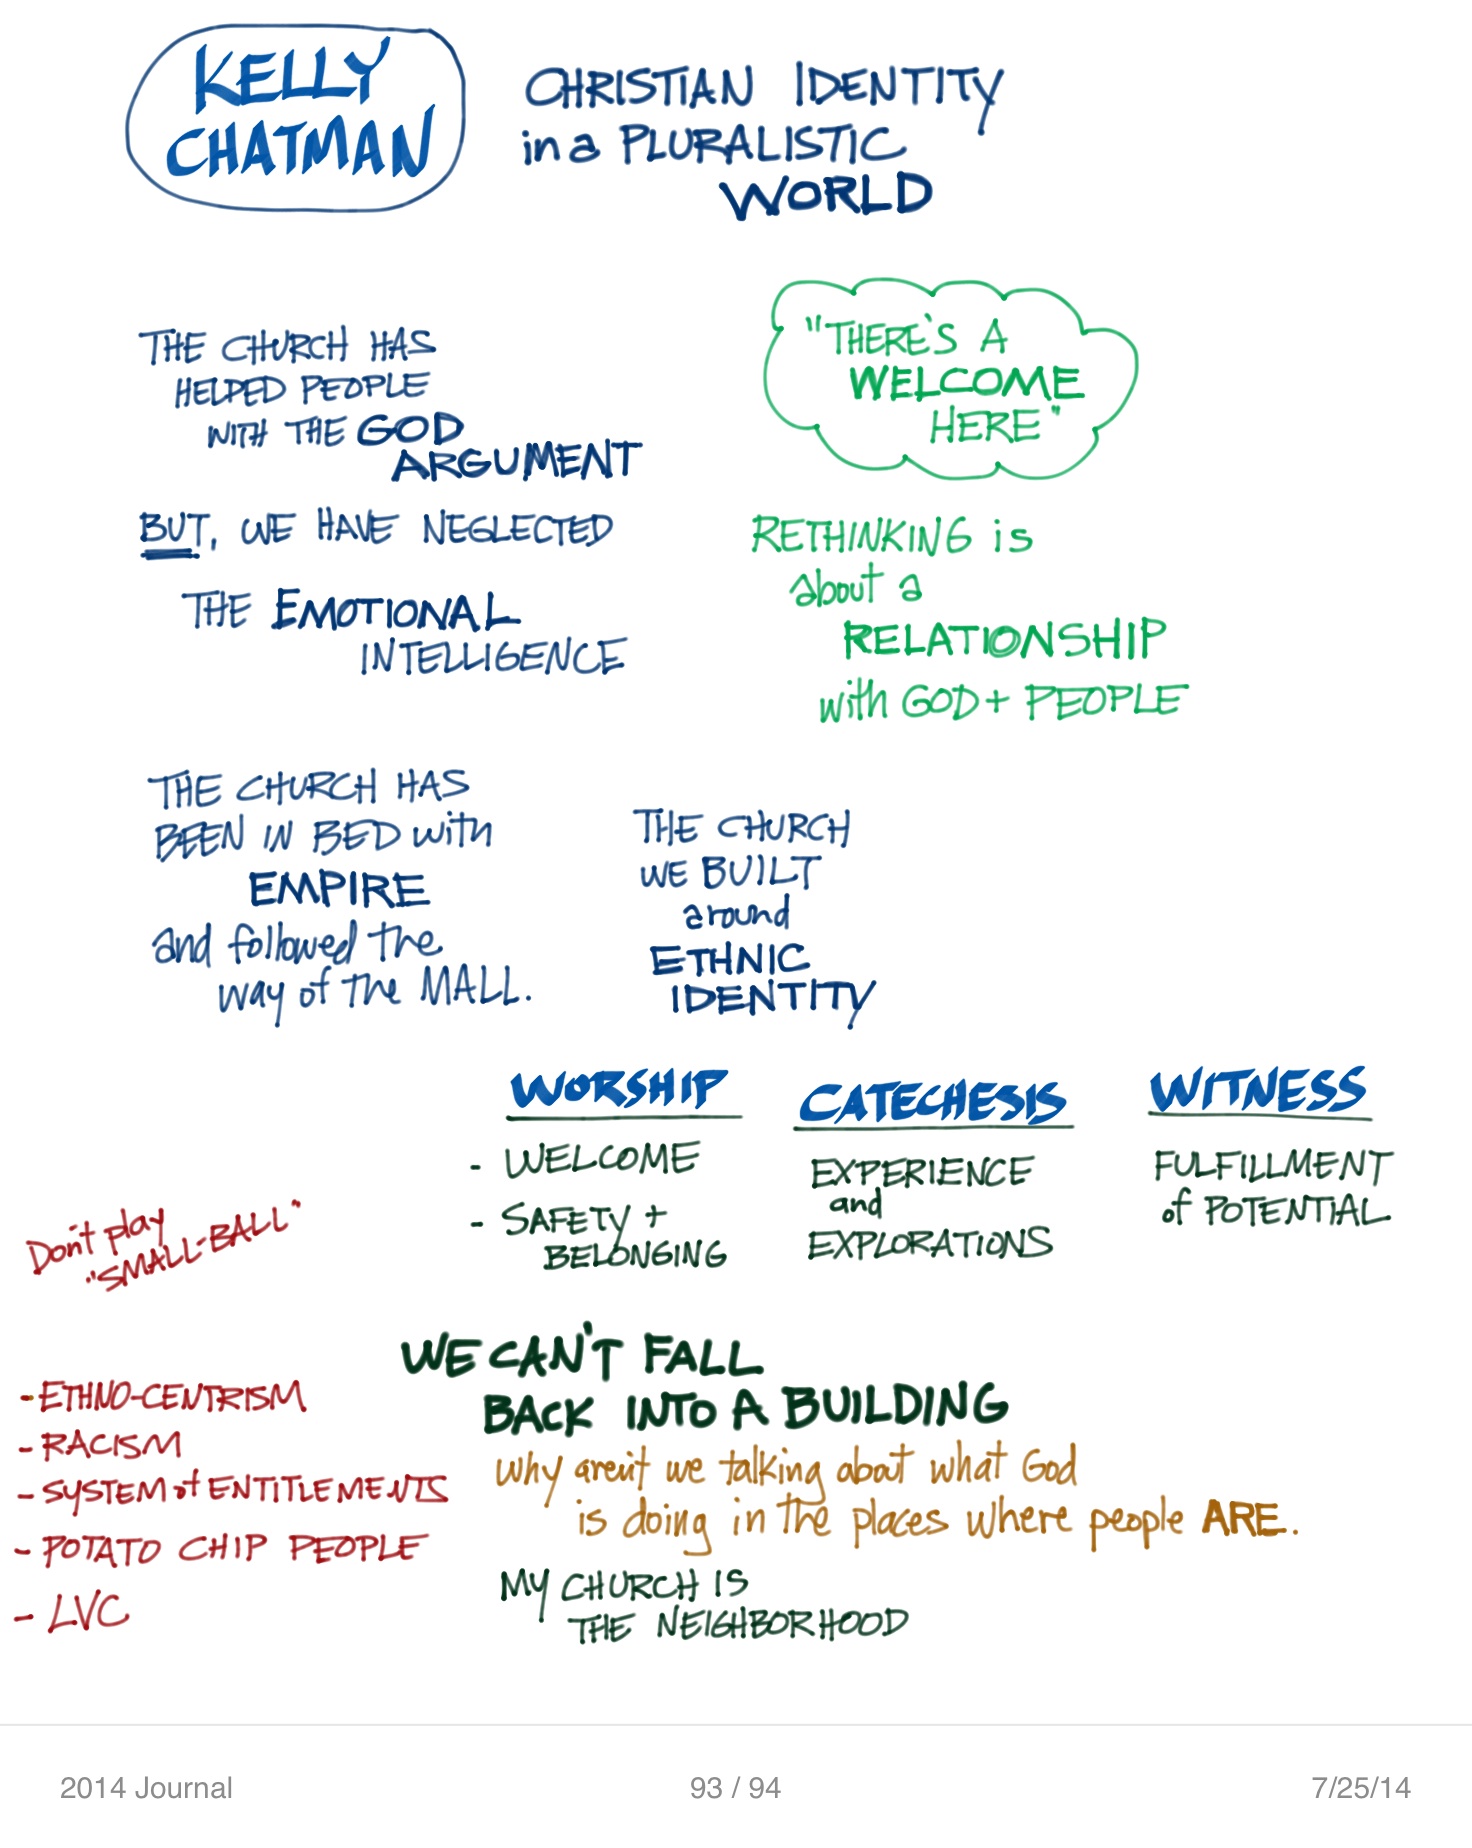 KELLY
CHATMAN
CHRISTIAN IDENTITY
in a PLURALISTIC
WORLD
THE CHURCH HAS
HELPED PEOPLE
WITH THE GOD
ARGUMENT
BUT, WE HAVE NEGLECTED
THE EMOTIONAL
INTELLIGENCE
"THERE'S A
WELCOME
HERE"
RETHINKING is
about a
RELATIONSHIP
with GOD + PEOPLE
THE CHURCH HAS
BEEN IN BED with
EMPIRE
and followed the
way of the MALL.
THE CHURCH
WE BUILT
around
ETHNIC
IDENTITY
WORSHIP
- WELCOME
- SAFETY +
BELONGING
CATECHESIS
EXPERIENCE
and
EXPLORATIONS
WITNESS
FULFILLMENT
of POTENTIAL
Don't play
"SMALL-BALL"
- ETHNO-CENTRISM
- RACISM
- SYSTEM of ENTITLEMENTS
- POTATO CHIP PEOPLE
- LVC
WE CAN'T FALL
BACK INTO A BUILDING
Why aren't we talking about what God
is doing in the places where people ARE.
MY CHURCH IS
THE NEIGHBORHOOD
2014 Journal
93 / 94
7/25/14